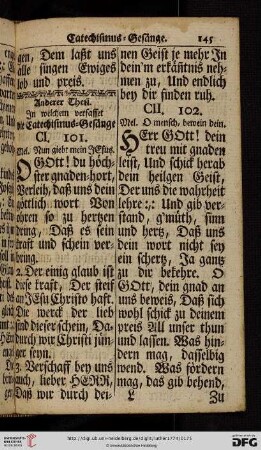 Catechismus-Gesänge. 145
gen, Dem laßt uns
alle singen Ewiges
lob und preis.
Anderer Theil.
In welchem verfasset
die Catechismus-Gesänge
CI. 101.
Mel. Nun giebt mein JEsus.
O GOtt! du höch-
ster gnaden-hort,
Verleih, daß uns dein
göttlich wort Von
ohren so zu hertzen
dring, Daß es sein
kraft und schein ver-
bring.
2. Der einig glaub ist
diese kraft, Der steif
an JEsu Christo haft.
Die werck der lieb
sind dieser schein, Da-
durch wir Christi jün-
ger seyn.
3. Verschaff bey uns
auch, lieber HERR,
Daß wir durch dei-
nen Geist je mehr In
dein'm erkäntnis neh-
men zu, Und endlich
bey dir finden ruh.
CII. 102.
Mel. O mensch, bewein dein.
HErr GOtt! dein
treu mit gnaden
leist, Und schick herab
dein heilgen Geist,
Der uns die wahrheit
lehre :,: Und gib ver-
stand, g'müth, sinn
und hertz, Daß uns
dein wort nicht sey
ein schertz, Ja gantz
zu dir bekehre. O
GOtt, dein gnad an
uns beweis, Daß sich
wohl schick zu deinem
preis All unser thun
und lassen. Was hin-
dern mag, dasselbig
wend. Was fördern
mag, das gib behend,
L Zu
http://digi.ub.uni-heidelberg.de/diglit/luther1774/0175
© Universitätsbibliothek Heidelberg
gefördert durch die
DFG
UNIVERSITÄTS-
BIBLIOTHEK
HEIDELBERG